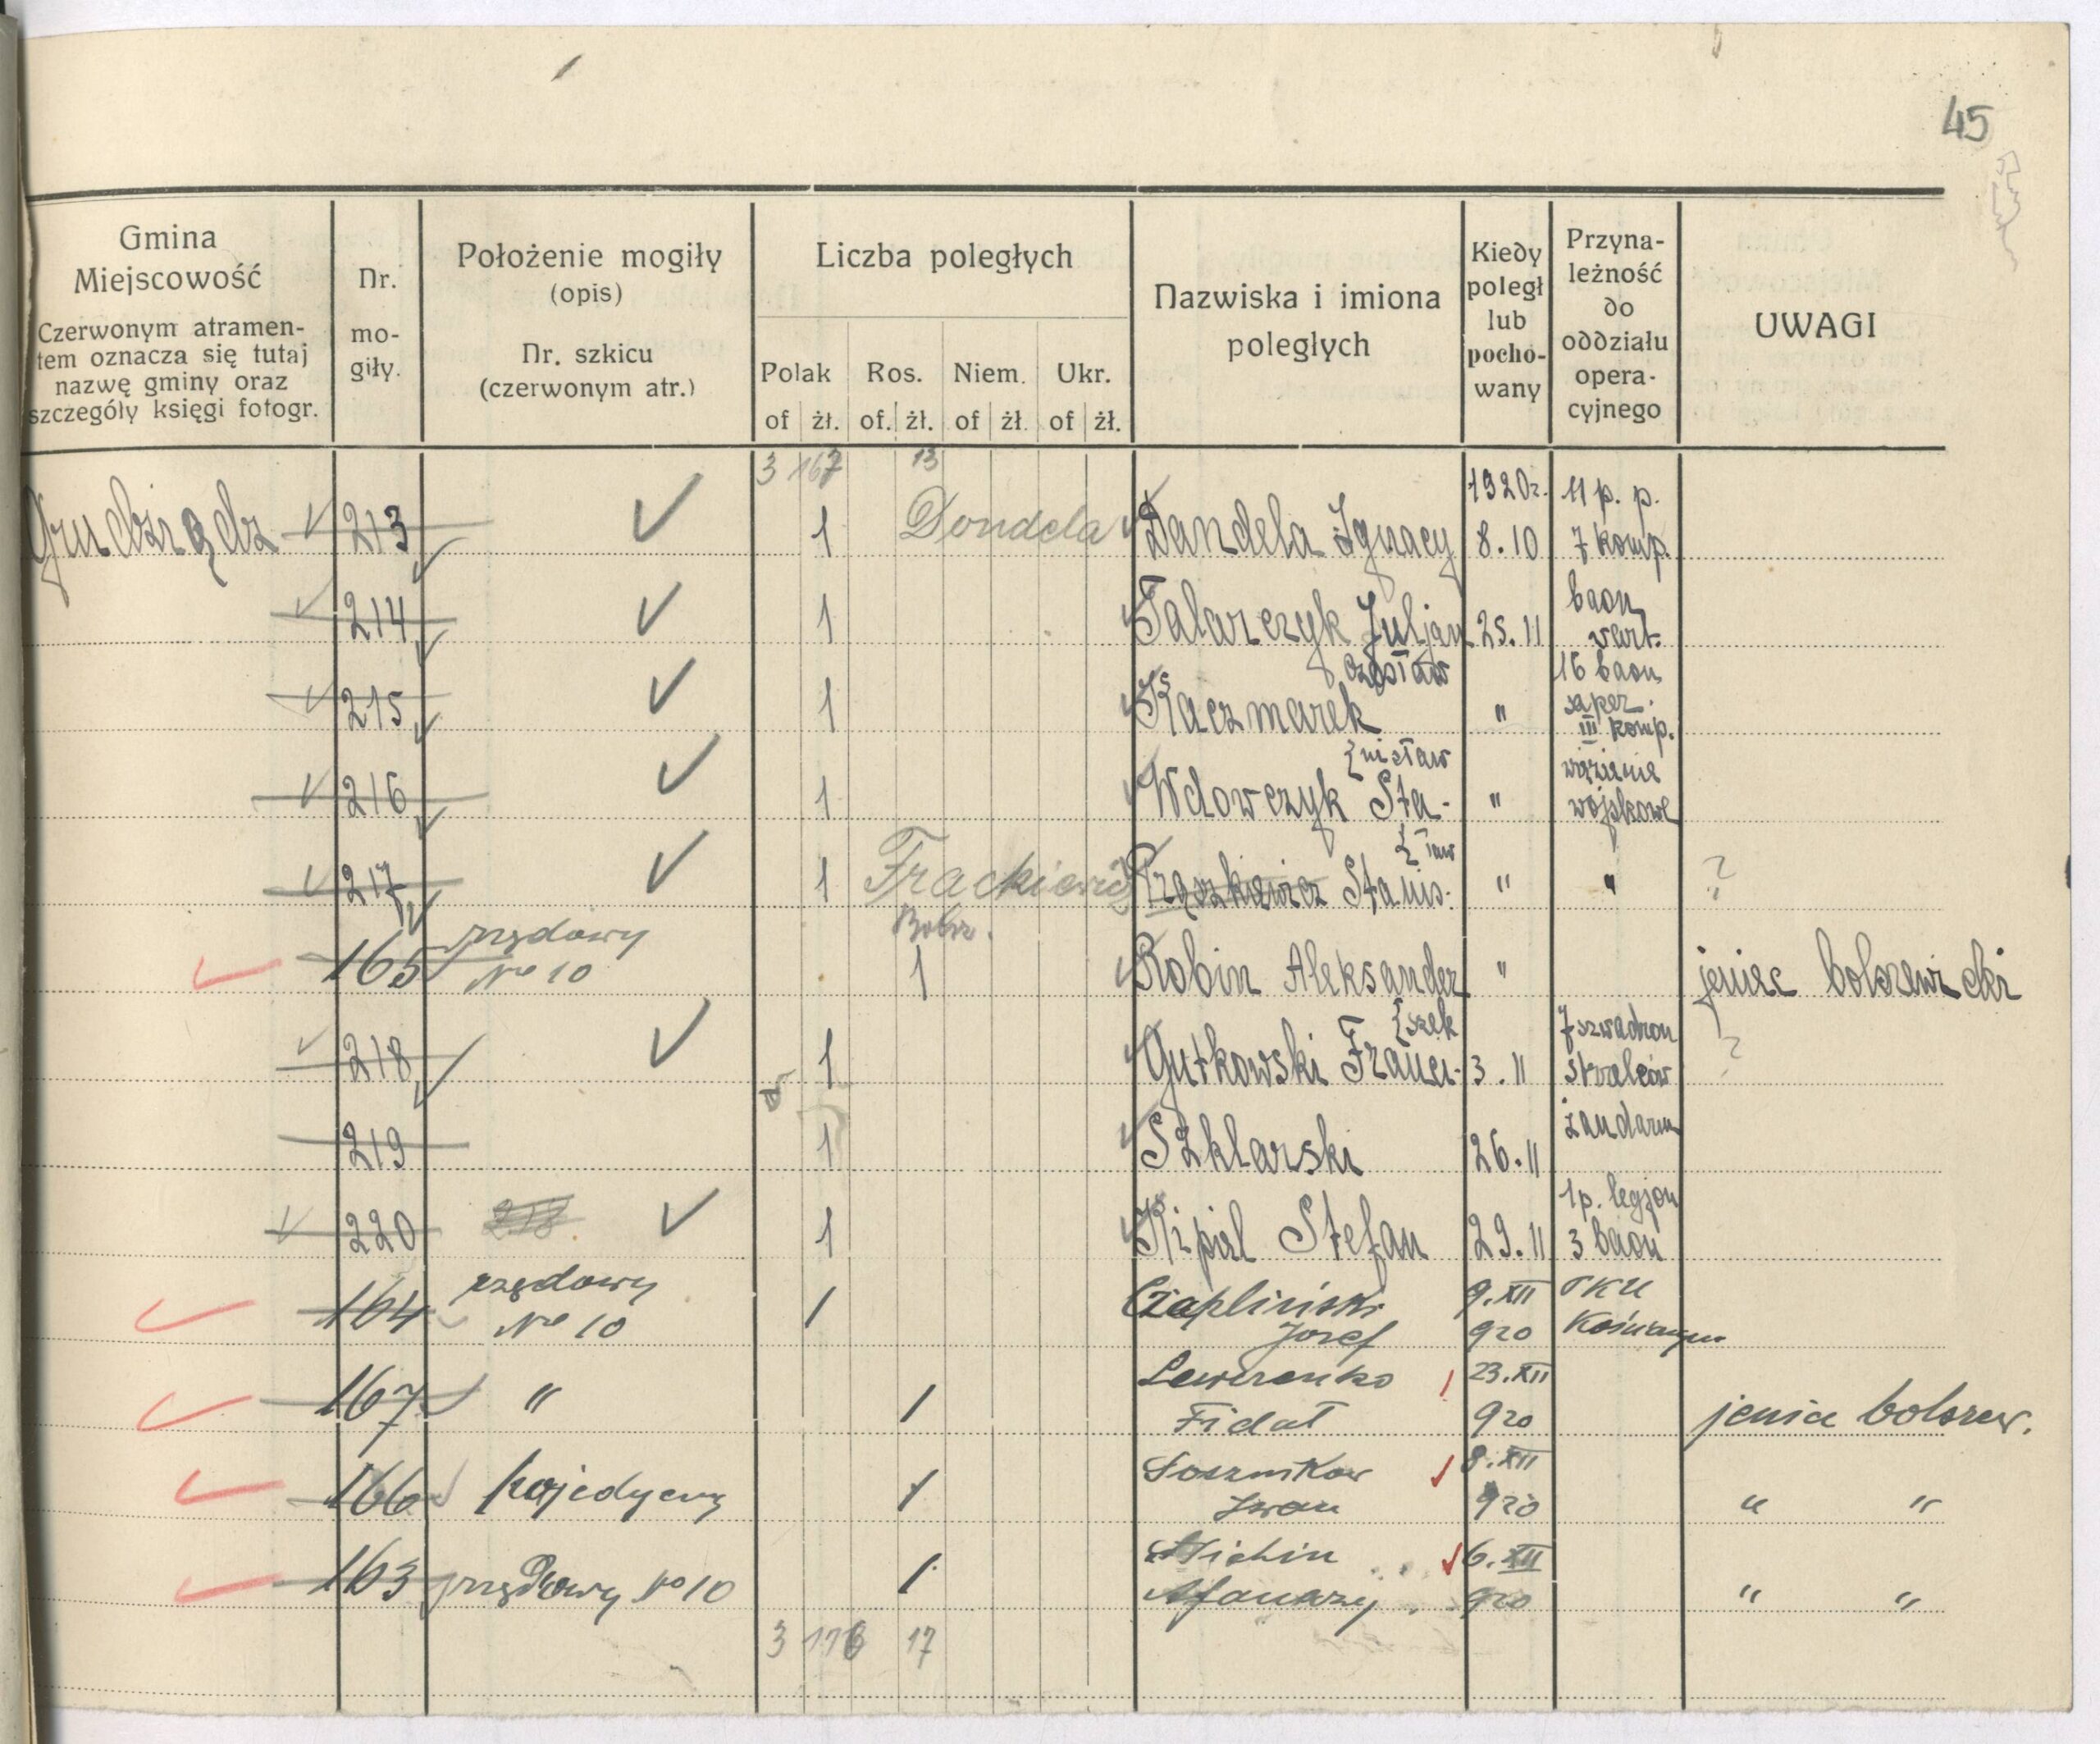 45
Gmina
Miejscowość
Czerwonym atramen-
tem oznacza się tutaj
nazwę gminy oraz
szczegóły księgi fotogr.
Nr.
mo-
giły.
Położenie mogiły
(opis)
Nr. szkicu
(czerwonym atr.)
Liczba poległych
Polak Ros. Niem. Ukr.
of żł. of. żł. of żł. of żł.
Nazwiska i imiona
poległych
Kiedy
poległ
lub
pocho-
wany
Przyna-
leżność
do
oddziału
opera-
cyjnego
UWAGI
3 167 13
1920r. 11 p. p.
Grudziądz 213 1 Dondela Dandela Ignacy 8.10 7 komp.
baon
214 1 Talarczyk Juljan 25.11 wart.
Czesław 16 baon
saper.
215 1 Kaczmarek " III komp.
{nisław więzienie
216 1 Wdowczyk Sta- " wojskowe
{ław
217 1 Frackiewicz Stanis- " " ?
rzędowy Bolsz.
165 No 10 1 Robin Aleksander " jeniec bolszewicki
{szek 7 szwadron
218 1 Gutkowski Franci- 3.11 strzelców ?
żandarm
219 1 Szklarski 26.11
1 p. legjon
220 1 Kipiel Stefan 29.11 3 baon
rzędowy Czapliński 9.XII PKU
164 No 10 1 Józef 920
Lewrenko 23.XII
167 " 1 Fidat 920 jenic bolszew.
Sosznikow 8.XII
166 pojedyczy 1 Iwan 920 " "
6.XII
163 rzędowy No 10 1 Afanazy 920 " "
3 176 17